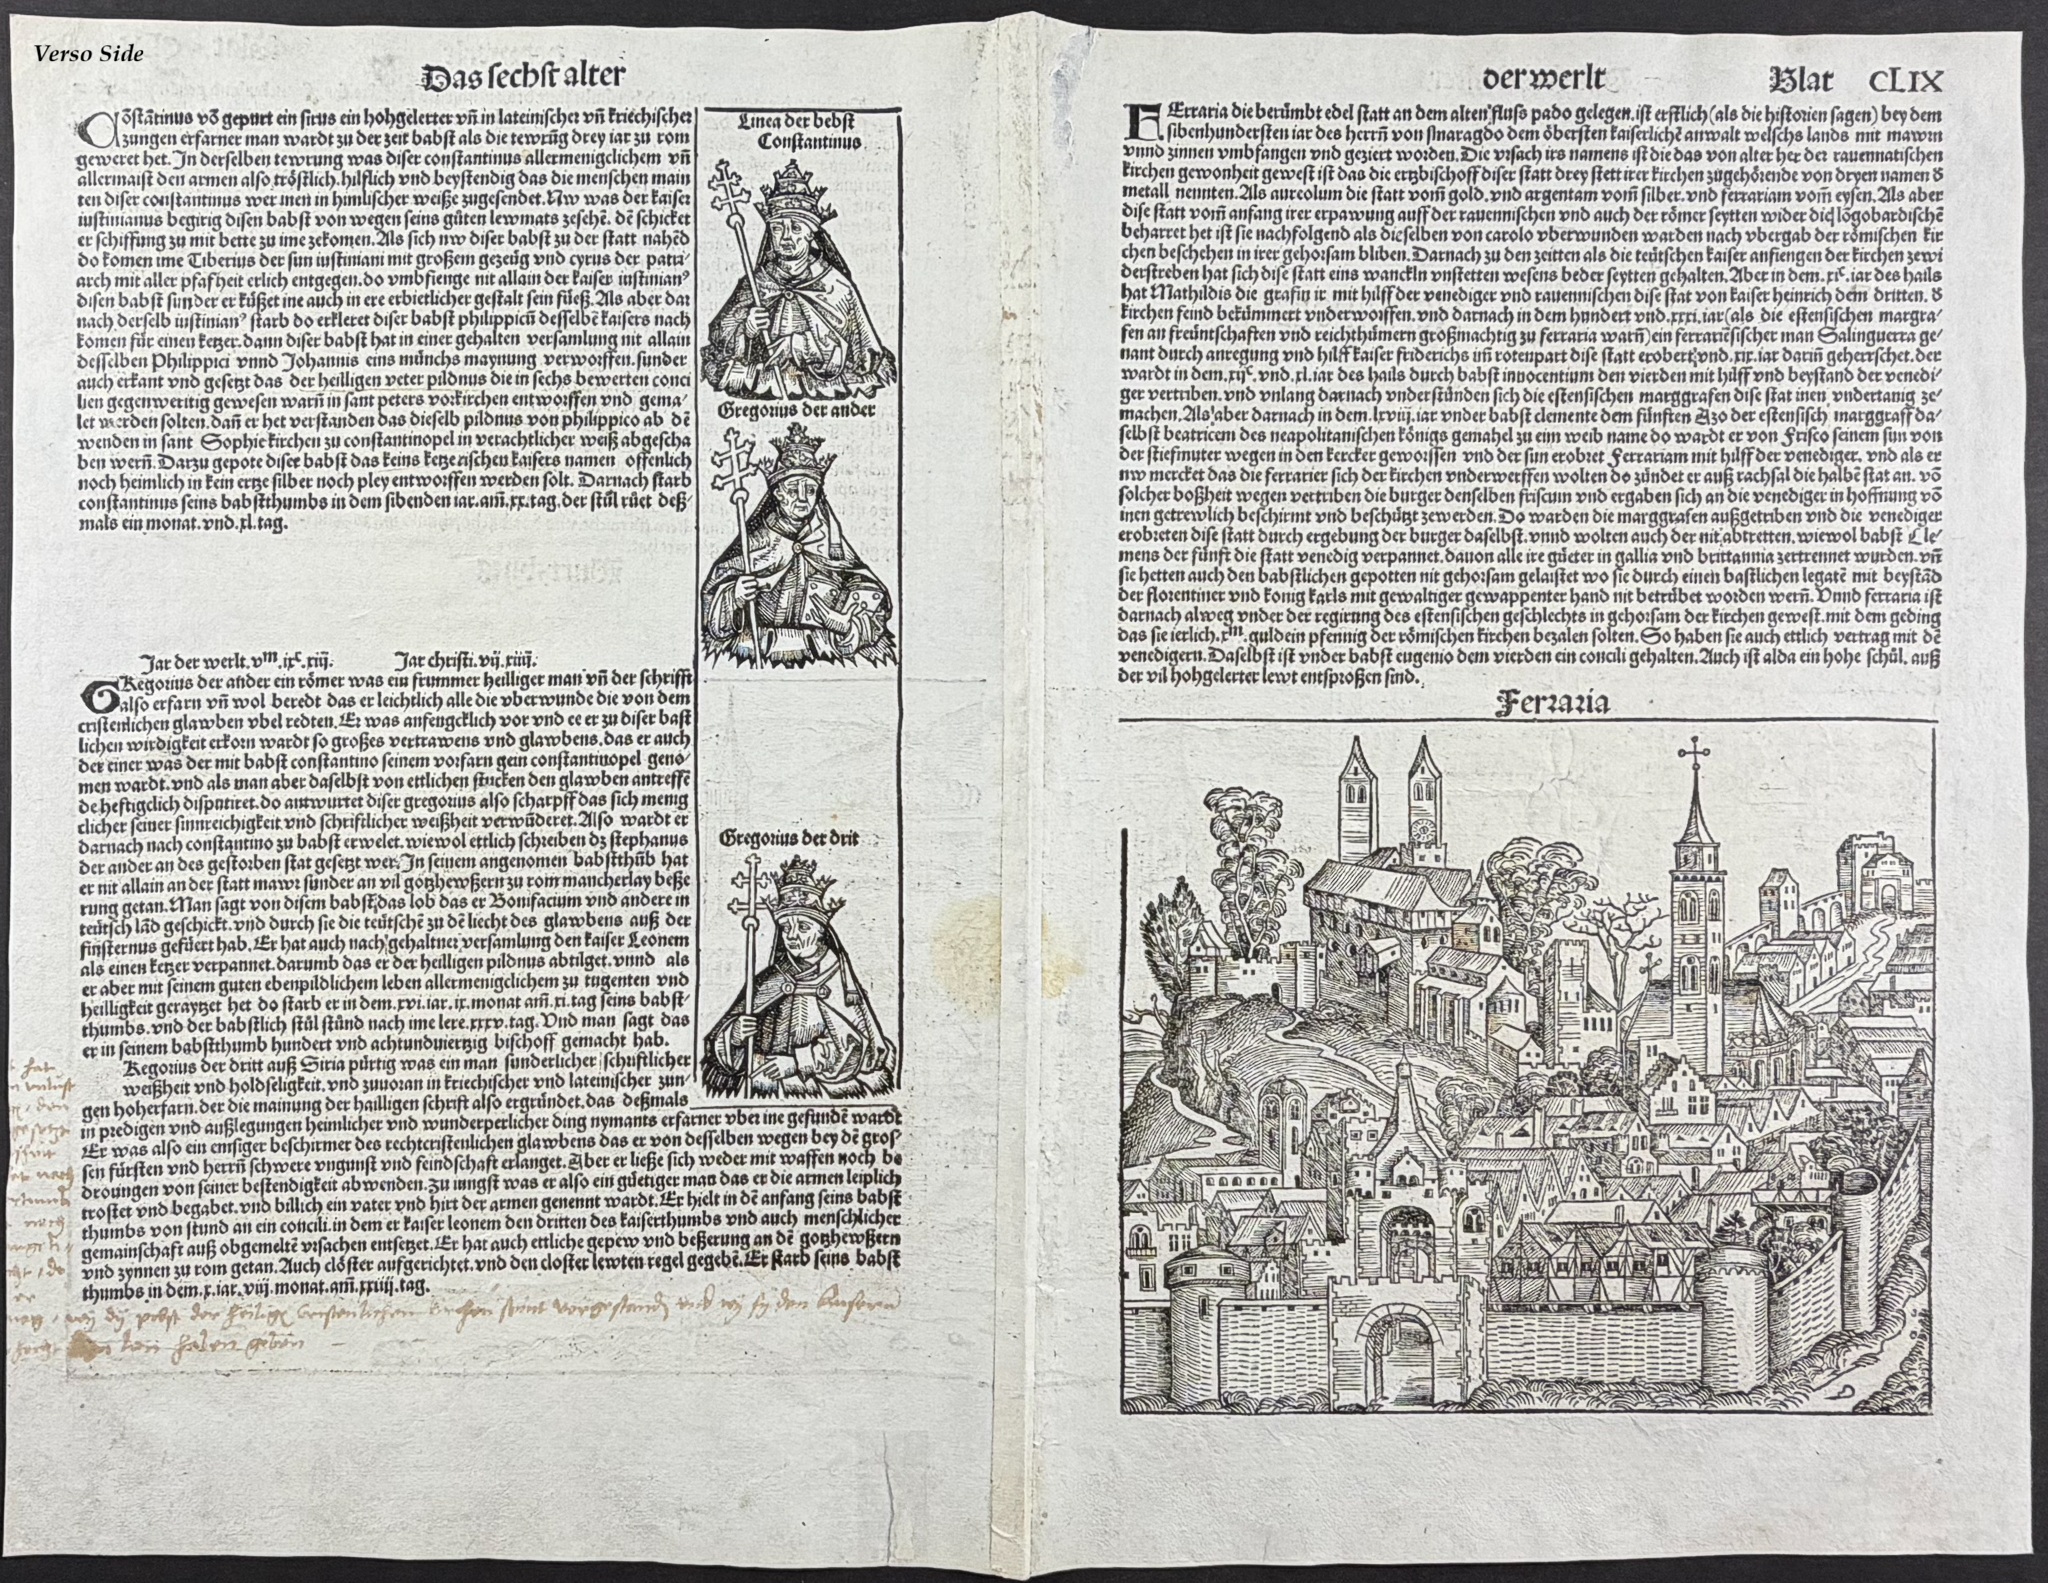 Verso Side
Das sechst alter
Cõstãtinus võ gepurt ein sirus ein hohgelerter vñ in lateinischer vñ kriechischer
zungen erfarner man wardt zu der zeit babst als die tewrũg drey iar zu rom
geweret het. In derselben tewrung was diser constantinus allermenigclichem vñ
allermaist den armen also tröstlich. hilflich vnd beystendig das die menschen main
ten diser constantinus wer inen in himlischer weiße zugesendet. Nw was der kaiser
iustinianus begirig disen babst von wegen seins gůten lewmats zesehẽ. dẽ schicket
er schiffung zu mit bette zu ime zekomen. Als sich nw diser babst zu der statt nahẽd
do komen ime Tiberius der sun iustiniani mit großem gezeůg vnd cyrus der patri-
arch mit aller pfafheit erlich entgegen. do vmbfienge nit allain der kaiser iustinian⁹
disen babst sunder er kůßet ine auch in ere erbietlicher gestalt sein fůeß. Als aber dar
nach derselb iustinian⁹ starb do erkleret diser babst philippicũ desselbẽ kaisers nach
komen für einen ketzer. dann diser babst hat in einer gehalten versamlung nit allain
desselben Philippici vnnd Johannis eins münchs maynung verworffen. sunder
auch erkant vnd gesetzt das der heilligen veter pildnus die in sechs bewerten conci
lien gegenweritig gewesen warñ in sant peters vorkirchen entworffen vnd gema-
let werden solten. dañ er het verstanden das dieselb pildnus von philippico ab dẽ
wenden in sant Sophie kirchen zu constantinopel in verachtlicher weiß abgescha
ben werñ. Darzu gepote diser babst das keins ketzerischen kaisers namen offenlich
noch heimlich in kein ertze silber noch pley entworffen werden solt. Darnach starb
constantinus seins babstthumbs in dem sibenden iar. am̃. xx. tag. der stůl růet deß-
mals ein monat. vnd. xl. tag.
Jar der werlt. vᵐ. ixᶜ. xiij.
Jar christi. vij. xiiij.
GRegorius der ander ein römer was ein frummer heilliger man vñ der schrifft
also erfarn vñ wol beredt das er leichtlich alle die vberwunde die von dem
cristenlichen glawben vbel redten. Er was anfengcklich vor vnd ee er zu diser bäst
lichen wirdigkeit erkorn wardt so großes vertrawens vnd glawbens. das er auch
der einer was der mit babst constantino seinem vorfarn gein constantinopel genõ-
men wardt. vnd als man aber daselbst von ettlichen stucken den glawben antreffẽ
de heftigclich disputiret. do antwurtet diser gregorius also scharpff das sich menig
clicher seiner sinnreichigkeit vnd schriftlicher weißheit verwũderet. Also wardt er
darnach nach constantino zu babst erwelet. wiewol ettlich schreiben dz stephanus
der ander an des gestorben stat gesetzt wer. In seinem angenomen babstthũb hat
er nit allain an der statt mawr sunder an vil gotzhewßern zu rom mancherlay beße
rung getan. Man sagt von disem babst das lob das er Bonifacium vnd andere in
teůtsch lãd geschickt. vnd durch sie die teůtschẽ zu dẽ liecht des glawbens auß der
finsternus gefůert hab. Er hat auch nach gehaltner versamlung den kaiser Leonem
als einen ketzer verpannet. darumb das er der heilligen pildnus abtilget. vnnd als
er aber mit seinem guten ebenpildlichem leben allermenigclichem zu tugenten vnd
heilligkeit geraytzet het do starb er in dem. xvi. iar. ix. monat am̃. xi. tag seins babst-
thumbs. vnd der babstlich stůl stůnd nach ime lere. xxxv. tag. Vnd man sagt das
er in seinem babstthumb hundert vnd achtundviertzig bischoff gemacht hab.
Regorius der dritt auß Siria pürtig was ein man sunderlicher schriftlicher
weißheit vnd holdseligkeit. vnd zuuoran in kriechischer vnd lateinischer zun-
gen hoherfarn. der die mainung der hailligen schrift also ergründet. das deßmals
in predigen vnd außlegungen heimlicher vnd wunderperlicher ding nymants erfarner vber ine gefundẽ wardt
Er was also ein emsiger beschirmer des rechtcristenlichen glawbens das er von desselben wegen bey dẽ gros-
sen fürsten vnd herrñ schwere vngunst vnd feindschaft erlanget. Aber er ließe sich weder mit waffen noch be
droungen von seiner bestendigkeit abwenden. zu iungst was er also ein gůetiger man das er die armen leiplich
trostet vnd begabet. vnd billich ein vater vnd hirt der armen genennt wardt. Er hielt in dẽ anfang seins babst
thumbs von stund an ein concili. in dem er kaiser leonem den dritten des kaiserthumbs vnd auch menschlicher
gemainschaft auß obgemeltẽ vrsachen entsetzet. Er hat auch ettliche gepew vnd beßerung an dẽ gotzhewßern
vnd zynnen zu rom getan. Auch clöster aufgerichtet. vnd den closter lewten regel gegebẽ. Er starb seins babst
thumbs in dem. x. iar. viij. monat. am̃. xxiiij. tag.
Linea der bebst
Constantinus
Gregorius der ander
Gregorius der drit
der werlt
Blat CLIX
FErraria die berümbt edel statt an dem alten fluss pado gelegen. ist erstlich (als die historien sagen) bey dem
sibenhundersten iar des herrñ von smaragdo dem öbersten kaiserlichẽ anwalt welschs lands mit mawrn
vnnd zinnen vmbfangen vnd geziert worden. Die vrsach irs namens ist die das von alter her der rauennatischen
kirchen gewonheit gewest ist das die ertzbischoff diser statt drey stett irer kirchen zugehörende võ dryen namen d̕
metall nennten. Als aureolum die statt vom̃ gold. vnd argentam vom̃ silber. vnd ferrariam vom̃ eysen. Als aber
dise statt vom̃ anfang irer erpawung auff der rauennischen vnd auch der römer seytten wider die lõgobardischẽ
beharret het ist sie nachfolgend als dieselben von carolo vberwunden warden nach vbergab der römischen kir
chen beschehen in irer gehorsam bliben. Darnach zu den zeitten als die teůtschen kaiser anfiengen der kirchen zewi
derstreben hat sich dise statt eins wanckln vnstetten wesens beder seytten gehalten. Aber in dem. xiᶜ. iar des hails
hat Mathildis die grafin ir mit hilff der venediger vnd rauennischen dise stat von kaiser heinrich dem dritten. d̕
kirchen feind bekümmert vnderworffen. vnd darnach in dem hundert vnd. xxxi. iar (als die estensischen margra-
fen an freůntschaften vnd reichthůmern großmachtig zu ferraria warñ) ein ferrariẽsischer man Salinguerra ge-
nant durch anregung vnd hilff kaiser friderichs im̃ rotenpart dise statt erobert. vnd. xix. iar dariñ geherrschet. der
wardt in dem. xijᶜ. vnd. xl. iar des hails durch babst innocentium den vierden mit hilff vnd beystand der venedi-
ger vertriben. vnd vnlang darnach vnderstůnden sich die estensischen marggrafen dise stat inen vndertanig ze-
machen. Als aber darnach in dem. lxviij. iar vnder babst clemente dem fünften Azo der estensisch marggraff da-
selbst beatricem des neapolitanischen königs gemahel zu eim weib name do wardt er von Frisco seinem sun von
der stiefmuter wegen in den kercker geworffen vnd der sun erobret Ferrariam mit hilff der venediger. vnd als er
nw mercket das die ferrarier sich der kirchen vnderwerffen wolten do zündet er auß rachsal die halbẽ stat an. võ
solcher boßheit wegen vertriben die burger denselben friscum vnd ergaben sich an die venediger in hoffnung võ
inen getrewlich beschirmt vnd beschützt zewerden. Do warden die marggrafen außgetriben vnd die venediger
erobreten dise statt durch ergebung der burger daselbst. vnnd wolten auch der nit abtretten. wiewol babst Cle-
mens der fünft die statt venedig verpannet. dauon alle ire gůeter in gallia vnd brittannia zertrennet wurden. vñ
sie hetten auch den babstlichen gepotten nit gehorsam gelaistet wo sie durch einen bastlichen legatẽ mit beystãd
der florentiner vnd konig karls mit gewaltiger gewappenter hand nit betrübet worden werñ. Vnnd ferraria ist
darnach alweg vnder der regirung des estensischen geschlechts in gehorsam der kirchen gewest. mit dem geding
das sie ierlich. xᵐ. guldein pfennig der römischen kirchen bezalen solten. So haben sie auch ettlich vertrag mit dẽ
venedigern. Daselbst ist vnder babst eugenio dem vierden ein concili gehalten. Auch ist alda ein hohe schůl. auß
der vil hohgelerter lewt entsproßen sind.
Ferraria